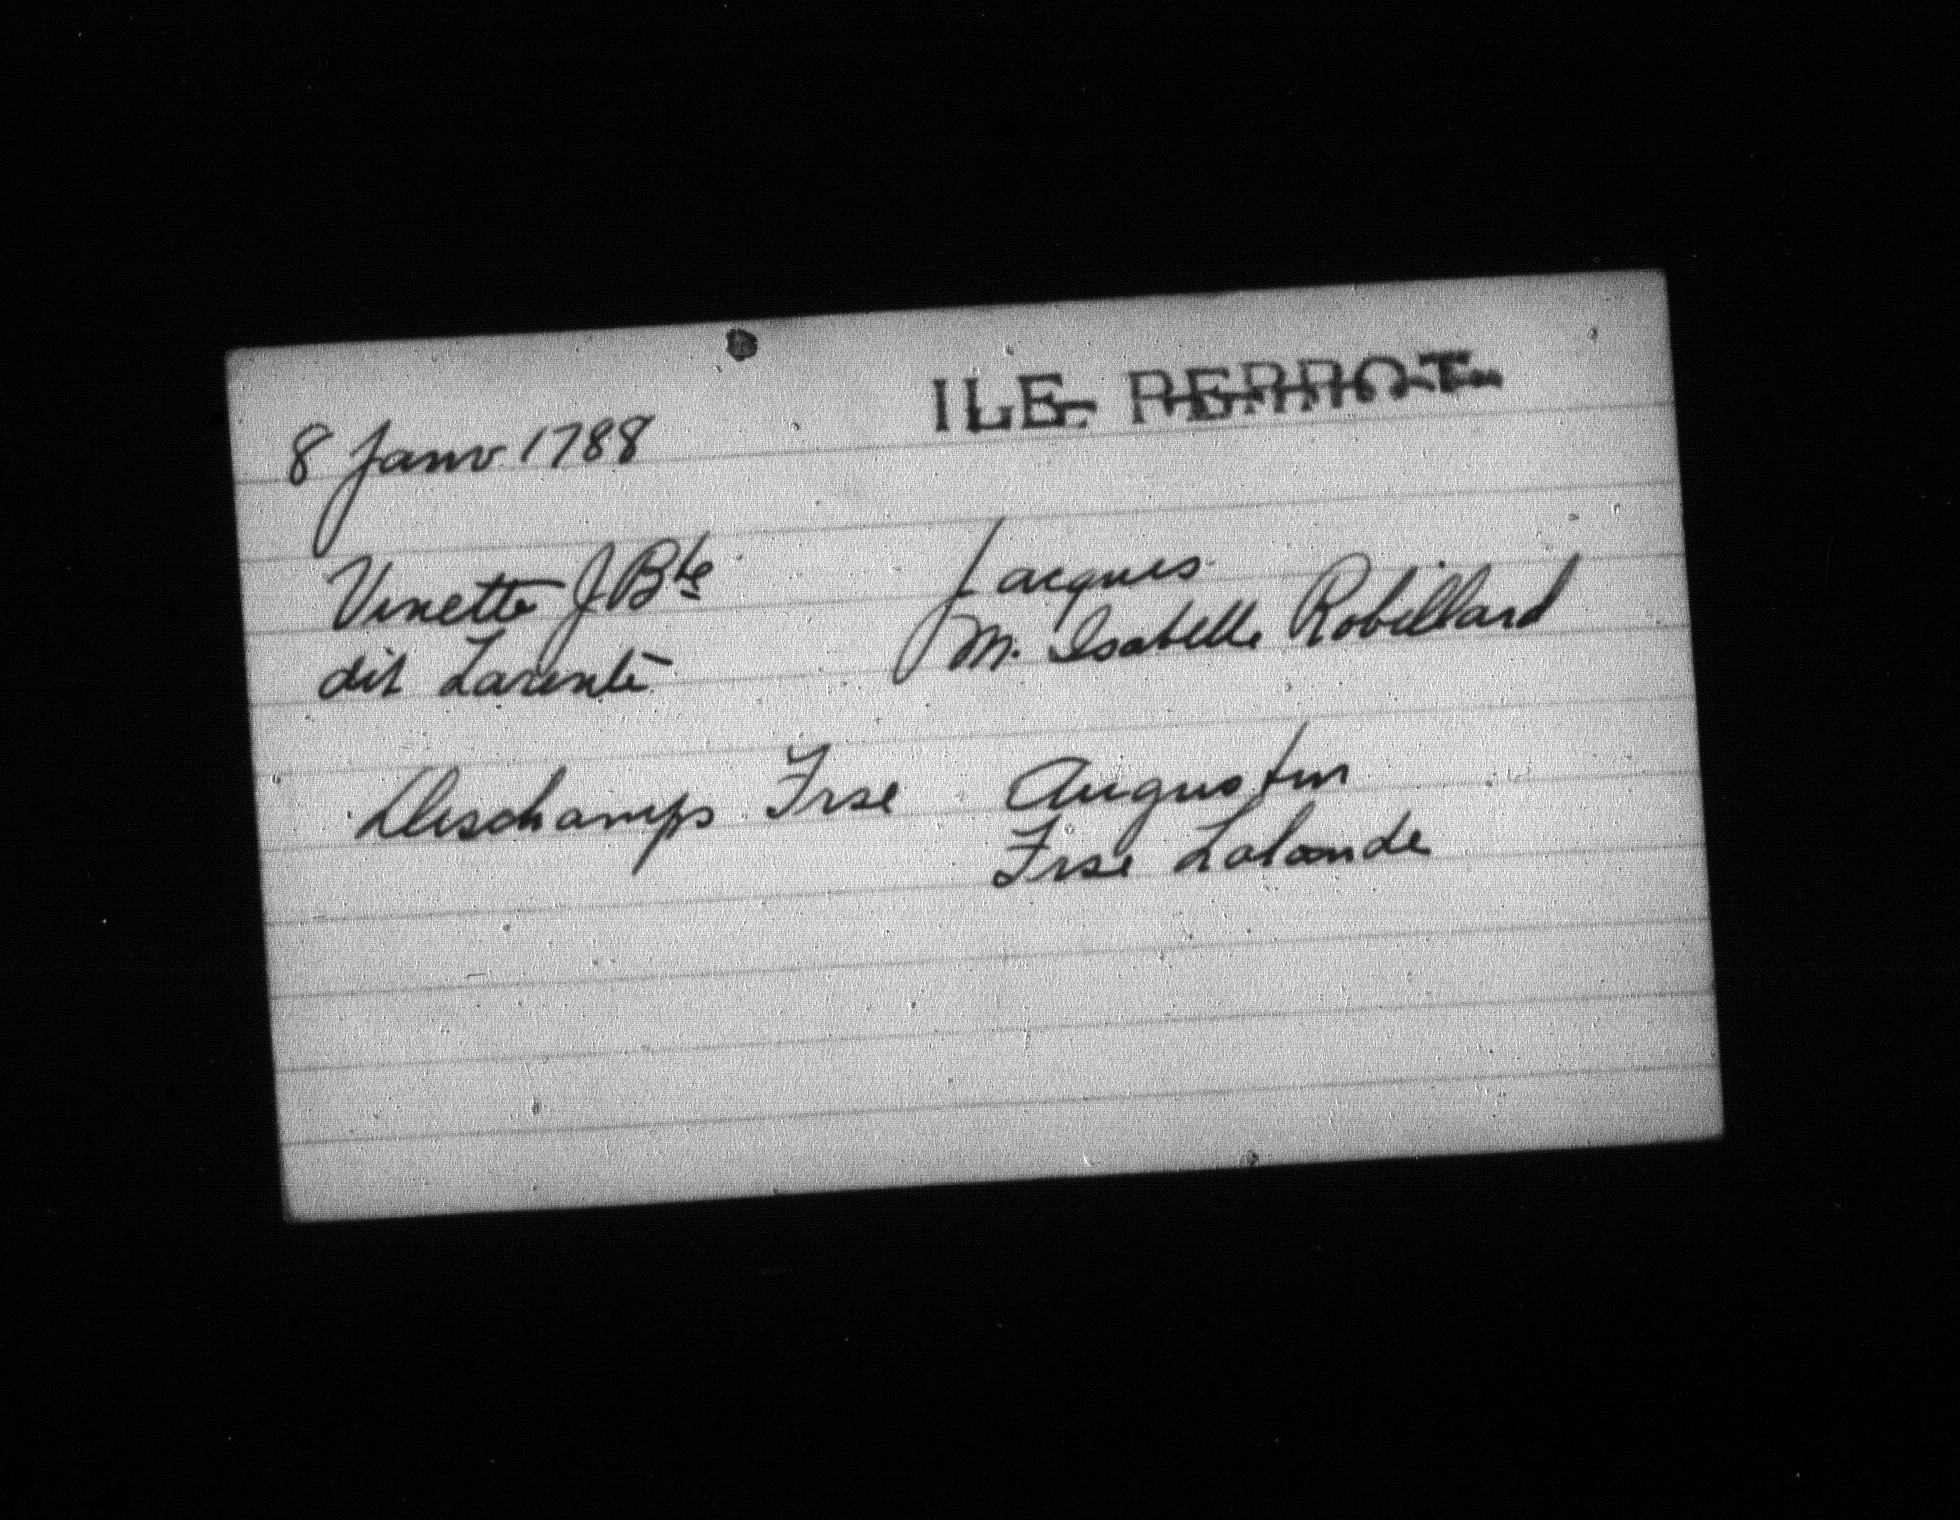 ILE PERROT
8 Janv 1788
Vinette J Bte Jacques
dit Larente M. Isabelle Robillard
Deschamps Frse Augustin
Frse Lalande